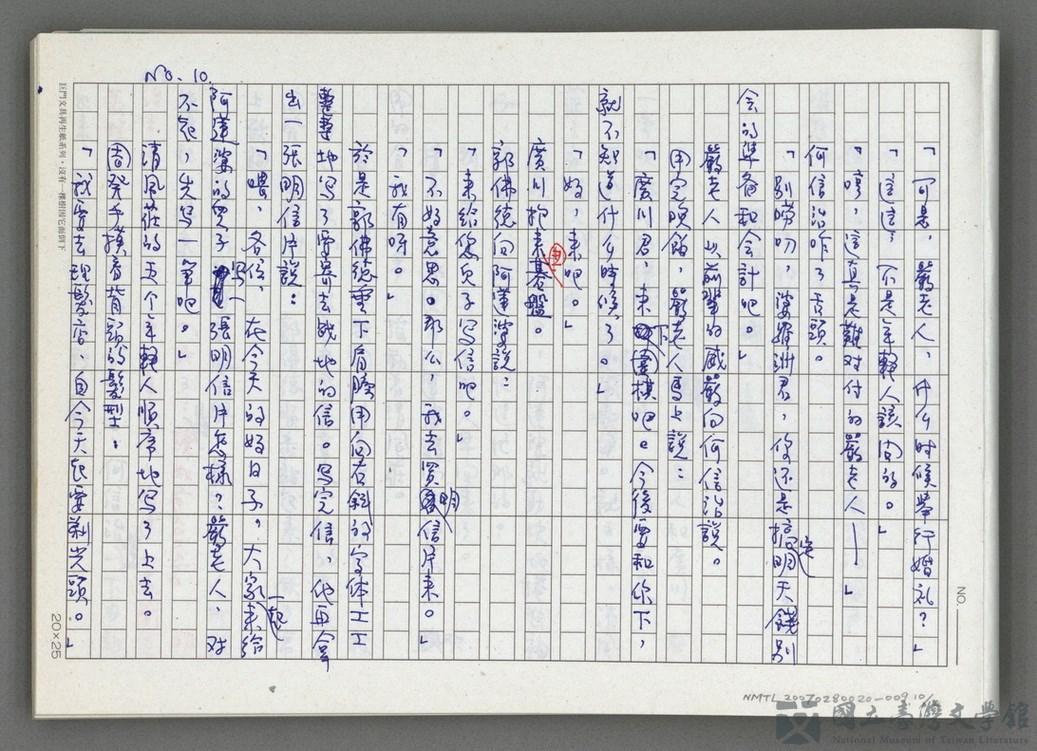 No. 10.
「可是，嚴老人，什么时候举行婚礼？」
「這這，不是年輕人該问的。」
「哼，這真是難对付的嚴老人——」
何信治咋了舌頭。
「别嘮叨，婆羅洲君，你还是搞定明天餞别
会的準备和会計吧。」
嚴老人以前輩的威嚴向何信治說。
用完晚飯，嚴老人馬上說：
「廣川君，来下圍棋吧。今後要和你下，
就不知道什么时候了。」
「好，来吧。」
廣川抱来棋盤。
郭佛德向阿蓮婆說：
「来給您兒子写信吧。」
「不好意思。那么，我去買明信片来。」
「我有呀。」
於是郭佛德垂下肩膀用向右斜的字体工工
整整地写了要寄去战地的信。写完信，他再拿
出一張明信片說：
「喂，各位，在今天的好日子，大家一起来給
阿蓮婆的兒子写一張明信片怎樣？嚴老人，对
不起，先写一筆吧。」
清風莊的五个年輕人順序地写了上去。
周癸手摸着背頭的髮型：
「我要去理髮店，自今天起要剃光頭。」
巨門文具再生紙系列・沒有一棵樹因它而倒下
NO.
20×25
NMTL 20070280020-009 10/
國立臺灣文學館
National Museum of Taiwan Literature